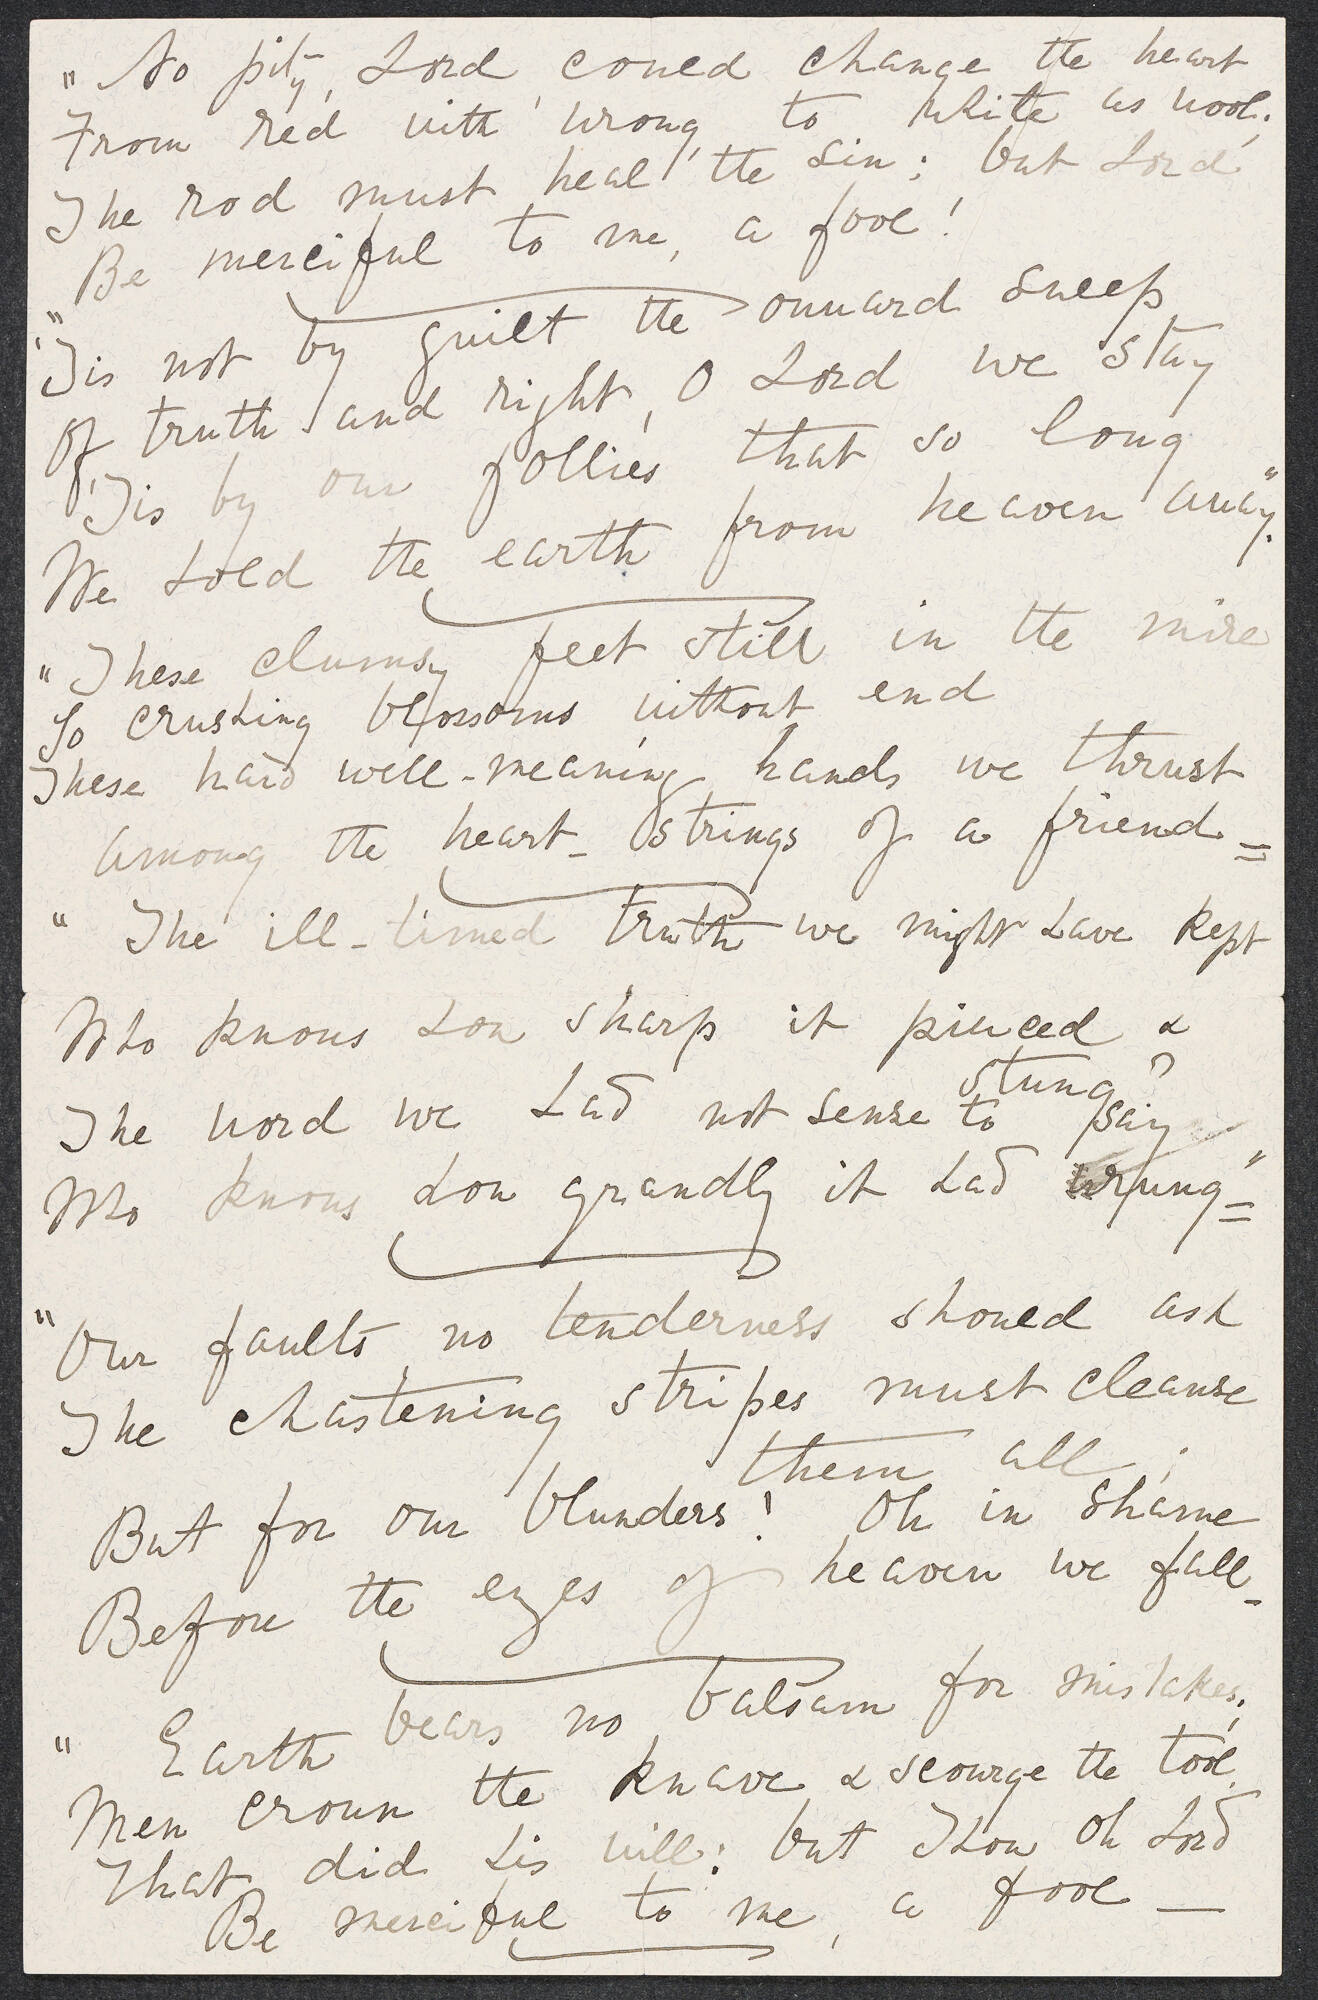 " No pity, Lord, could change the heart
From red with wrong, to white as wool;
The rod must heal the sin; but Lord
Be merciful to me, a fool!
"'Tis not by guilt the onward sweep
Of truth and right, O Lord we stay
'Tis by our follies that so long
We hold the earth from heaven away."
" These clumsy feet still in the mire
Go crushing blossoms without end
These hard well-meaning hands we thrust
Among the heart-strings of a friend=
" The ill-timed truth we might have kept
Who knows how sharp it pierced &
stung?
The word we had not sense to say
Who knows how grandly it had rung"=
"Our faults no tenderness should ask
The chastening stripes must cleanse
them all;
But for our blunders! Oh in shame
Before the eyes of heaven we fall-
" Earth bears no balsam for mistakes;
Men crown the knave & scourge the tool
That did his will: but Thou Oh Lord
Be merciful to me, a fool —